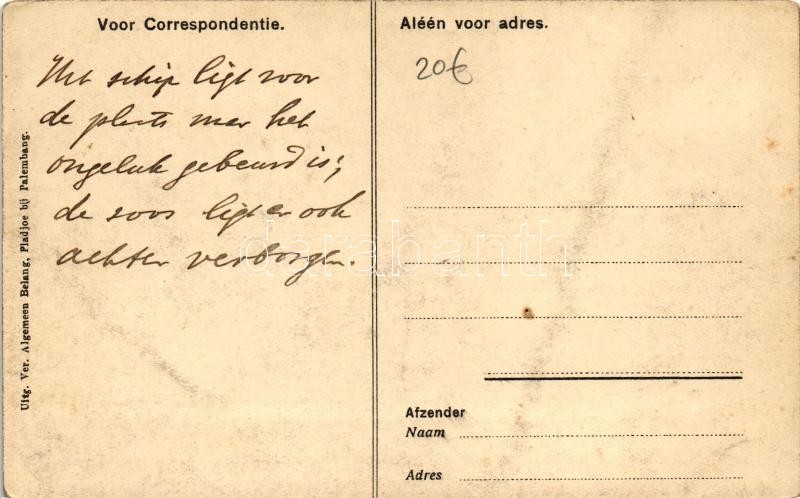 Voor Correspondentie.
Het schip ligt voor
de plaats waar het
ongeluk gebeurd is;
de soos ligt er ook
achter verborgen.
Uitg. Ver. Algemeen Belang, Pladjoe bij Palembang.
Aléén voor adres.
20€
darabanth
Afzender
Naam
Adres